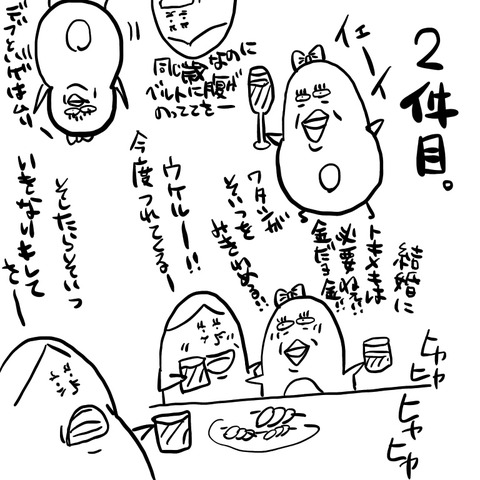 2件目。
イェーイ
同じ歳なのに
ベルトに腹が
のっててを
結婚に
トキメキは
必要ねぇ!!
金だよ金!!
ワタシが
そいつを
みきわめる!!
ウケルー!!
今度つれてくるー
そしたらそいつ
いきなりキして
さー
ヒャヒャ
ヒャヒャ